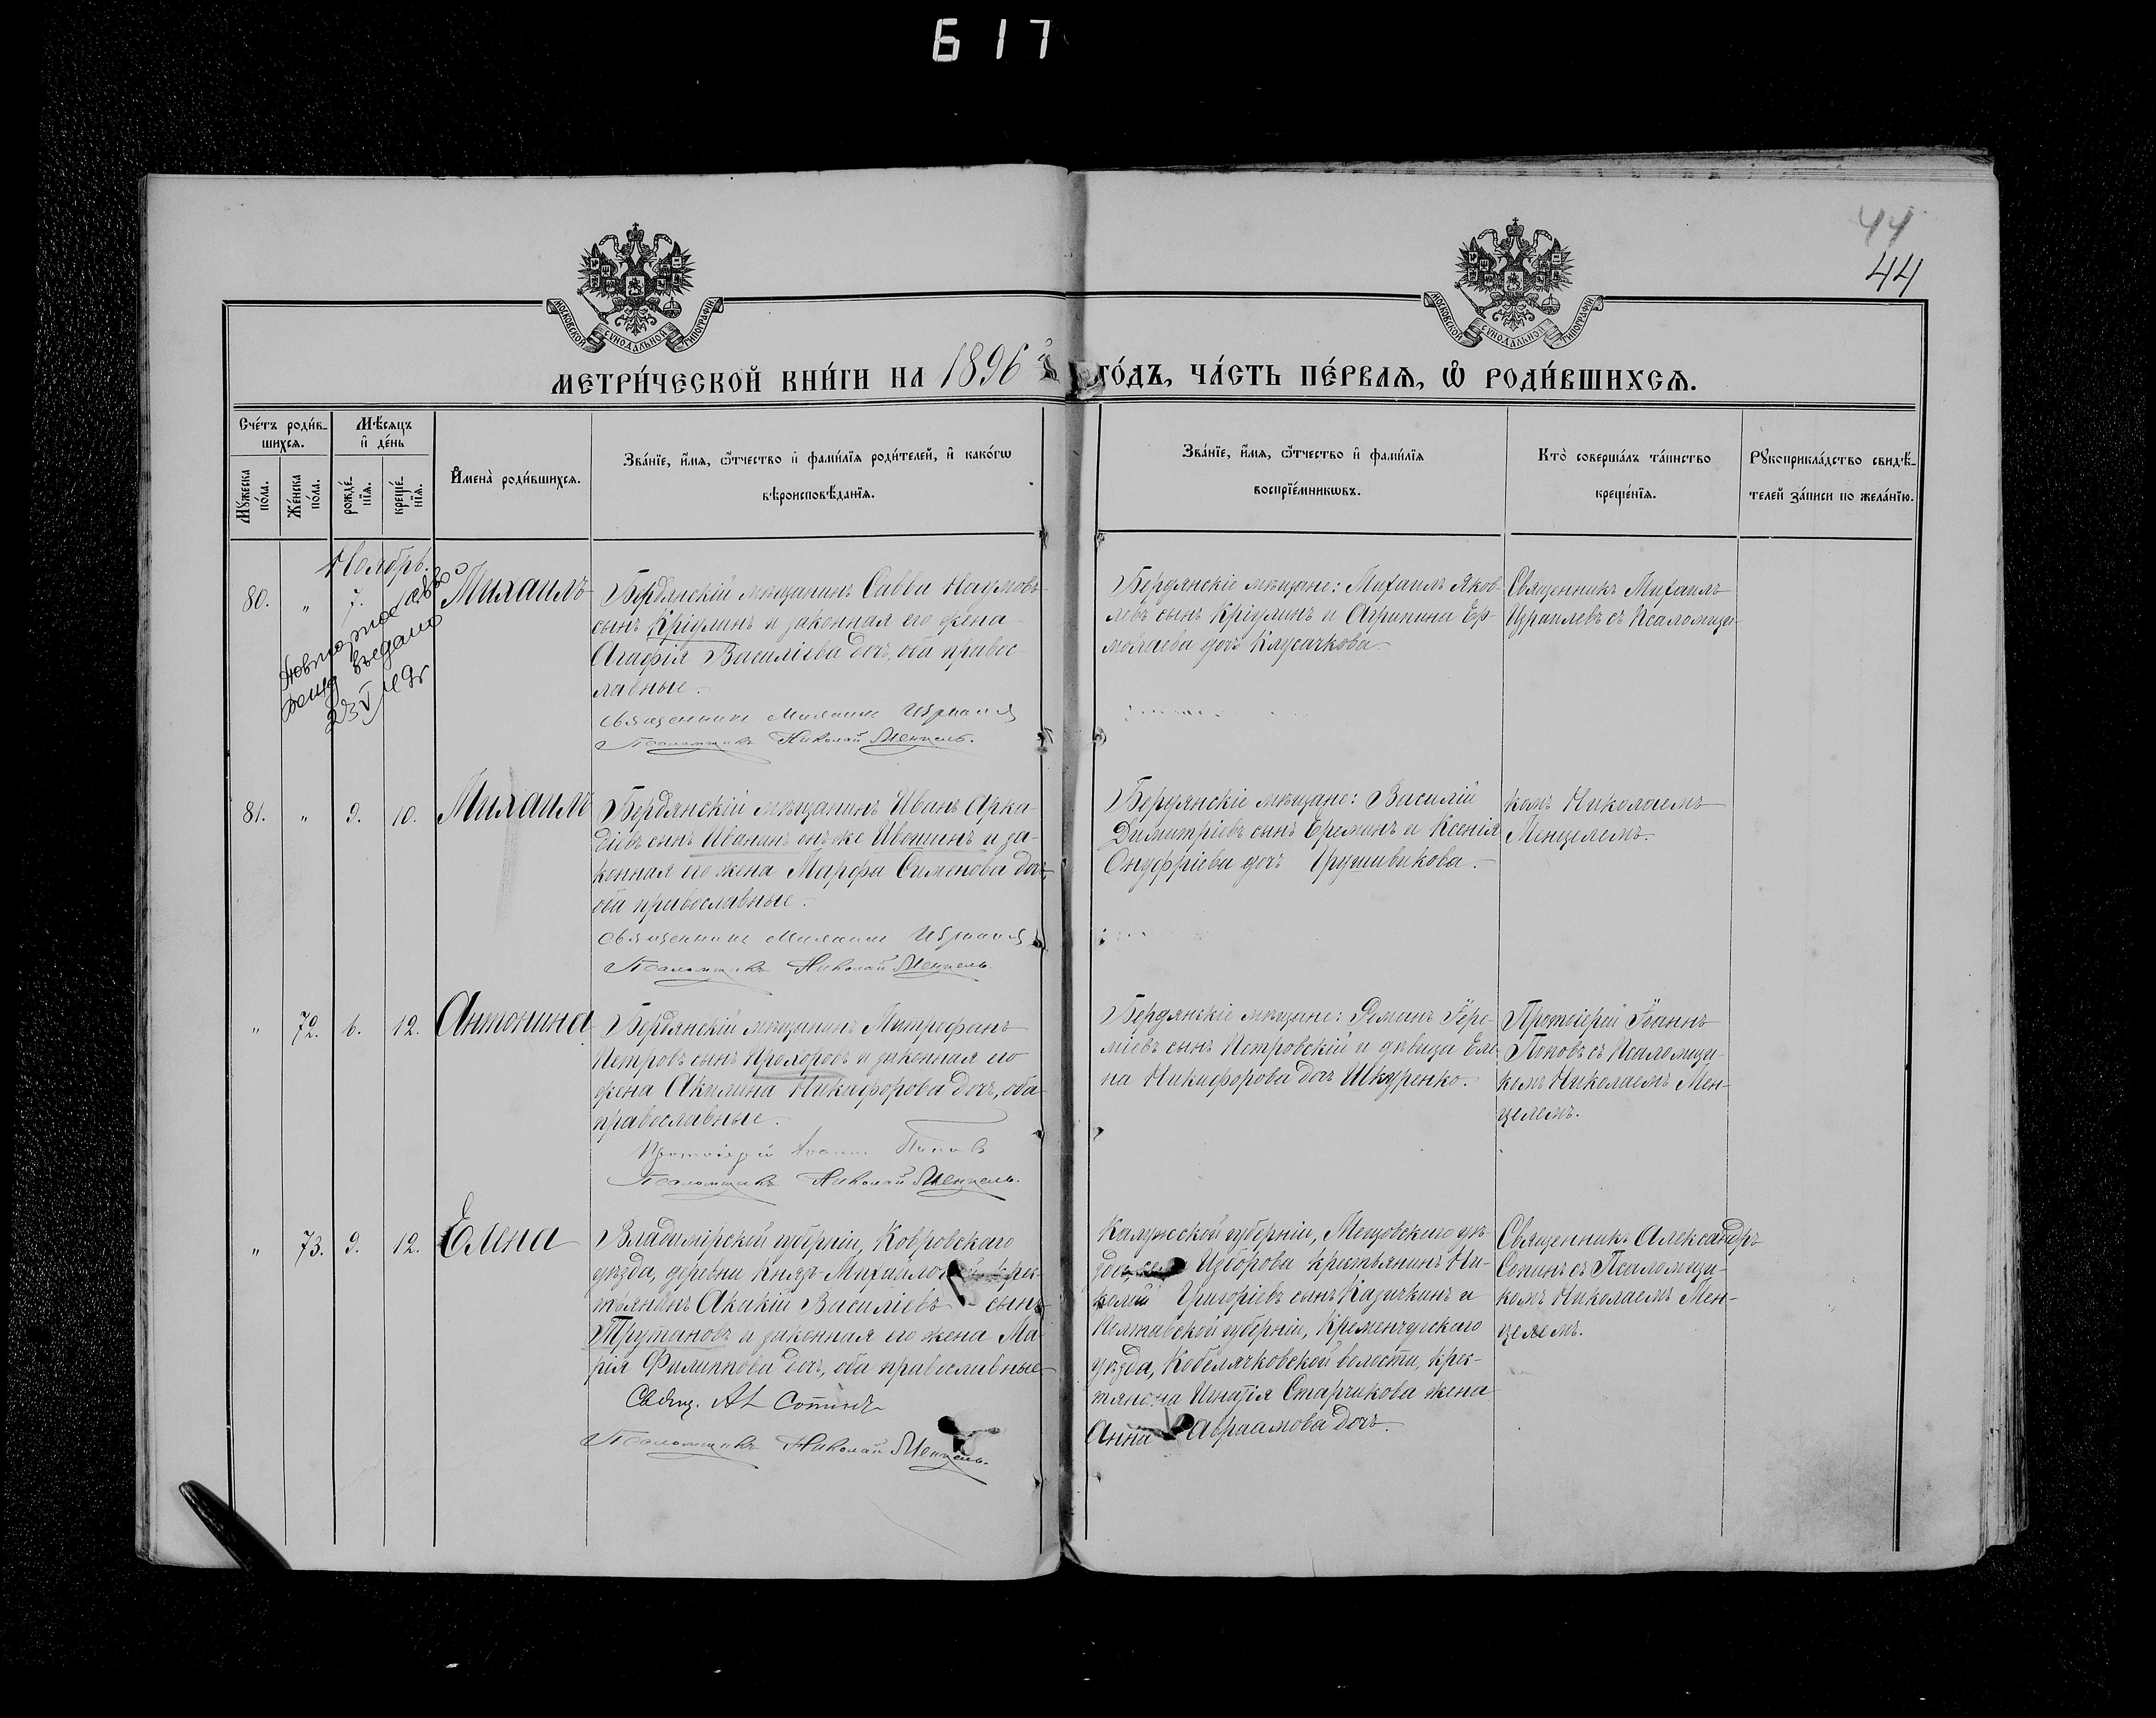 617
44
44
МОСКОВСКОЙ СУНОДАЛЬНОЙ ТИПОГРАФІИ
МОСКОВСКОЙ СУНОДАЛЬНОЙ ТИПОГРАФІИ
МЕТРИ́ЧЕСКОЙ КНИ́ГИ НА 1896й ГО́ДЪ, ЧА́СТЬ ПЕ́РВАѦ, Ѡ҆ РОДИ́ВШИХСѦ.
Сче́тъ роди́в-
шихсѧ.
Мꙋ́жеска по́ла.
Же́нска по́ла.
Мѣ́сѧцъ и҆ де́нь
рожде́-
нїѧ.
креще́-
нїѧ.
И҆мена̀ роди́вшихсѧ.
Зва́нїе, и҆́мѧ, ѻ҆́тчество и҆ фами́лїѧ роди́телей, и҆ како́гѡ
вѣроисповѣ́данїѧ.
Зва́нїе, и҆́мѧ, ѻ҆́тчество и҆ фами́лїѧ
воспрїе́мникѡвъ.
Кто̀ соверша́лъ та́инство
креще́нїѧ.
Рꙋкоприкла́дство свидѣ́-
телей за́писи по жела́нїю.
Ноябрь.
80. " 7. Михаилъ
Повторное свид
выдано
23 V 49г
Бердянскій мѣщанинъ Савва Наумовъ
сынъ Кріулинъ и законная его жена
Агафія Василіева дочь, оба правос-
лавные.
Священникъ Михаилъ Израилев
Псаломщикъ Николай Менцель.
Бердянскіе мѣщане: Михаилъ Яков-
левъ сынъ Кріулинъ и Агрипина Ер-
молаева дочь Клусачкова.
Священникъ Михаилъ
Израилевъ съ Псаломщи-
81. " 9. 10. Михаилъ
Бердянскій мѣщанинъ Иванъ Арка-
діевъ сынъ Иванинъ онъ же Ивошинъ и за-
конная его жена Марфа Симонова дочь,
оба православные.
Священникъ Михаилъ Израилев
Псаломщикъ Николай Менцель.
Бердянскіе мѣщане: Василій
Димитріевъ сынъ Ереминъ и Ксенія
Онуфріева дочь
комъ Николаемъ
Менцелемъ.
" 72. 6. 12. Антонина
Бердянскій мѣщанинъ Митрофанъ
Петровъ сынъ Прохоровъ и законная его
жена Акилина Никифорова дочь, оба
православные.
Протоіерей Іоаннъ Попов
Псаломщикъ Николай Менцель.
Бердянскіе мѣщане: Романъ Іере-
міевъ сынъ Петровскій и дѣвица Еле-
на Никифорова дочь Шкуренко.
Протоіерей Іоаннъ
Поповъ съ Псаломщи-
комъ Николаемъ Мен-
целемъ.
" 73. 9. 12. Елена
Владимірской губерніи, Ковровскаго
уѣзда, деревни Княз-Михайло крес-
тьянинъ Акакій Василіевъ сынъ
Трутановъ и законная его жена Ма-
рія Филиппова дочь, оба православные.
Свящ. Ал Сопинъ
Псаломщикъ Николай Менцель.
Калужской губерніи, Мещовскаго уѣ-
зда, села Изборова крестьянинъ Ни-
колай Григоріевъ сынъ Казичкинъ и
Полтавской губерніи, Кременчугскаго
уѣзда, Кобелячковской волости, крес-
тянина Игнатія Старчикова жена
Анна Авраамова дочь.
Священникъ Александръ
Сопинъ съ Псаломщи-
комъ Николаемъ Мен-
целемъ.